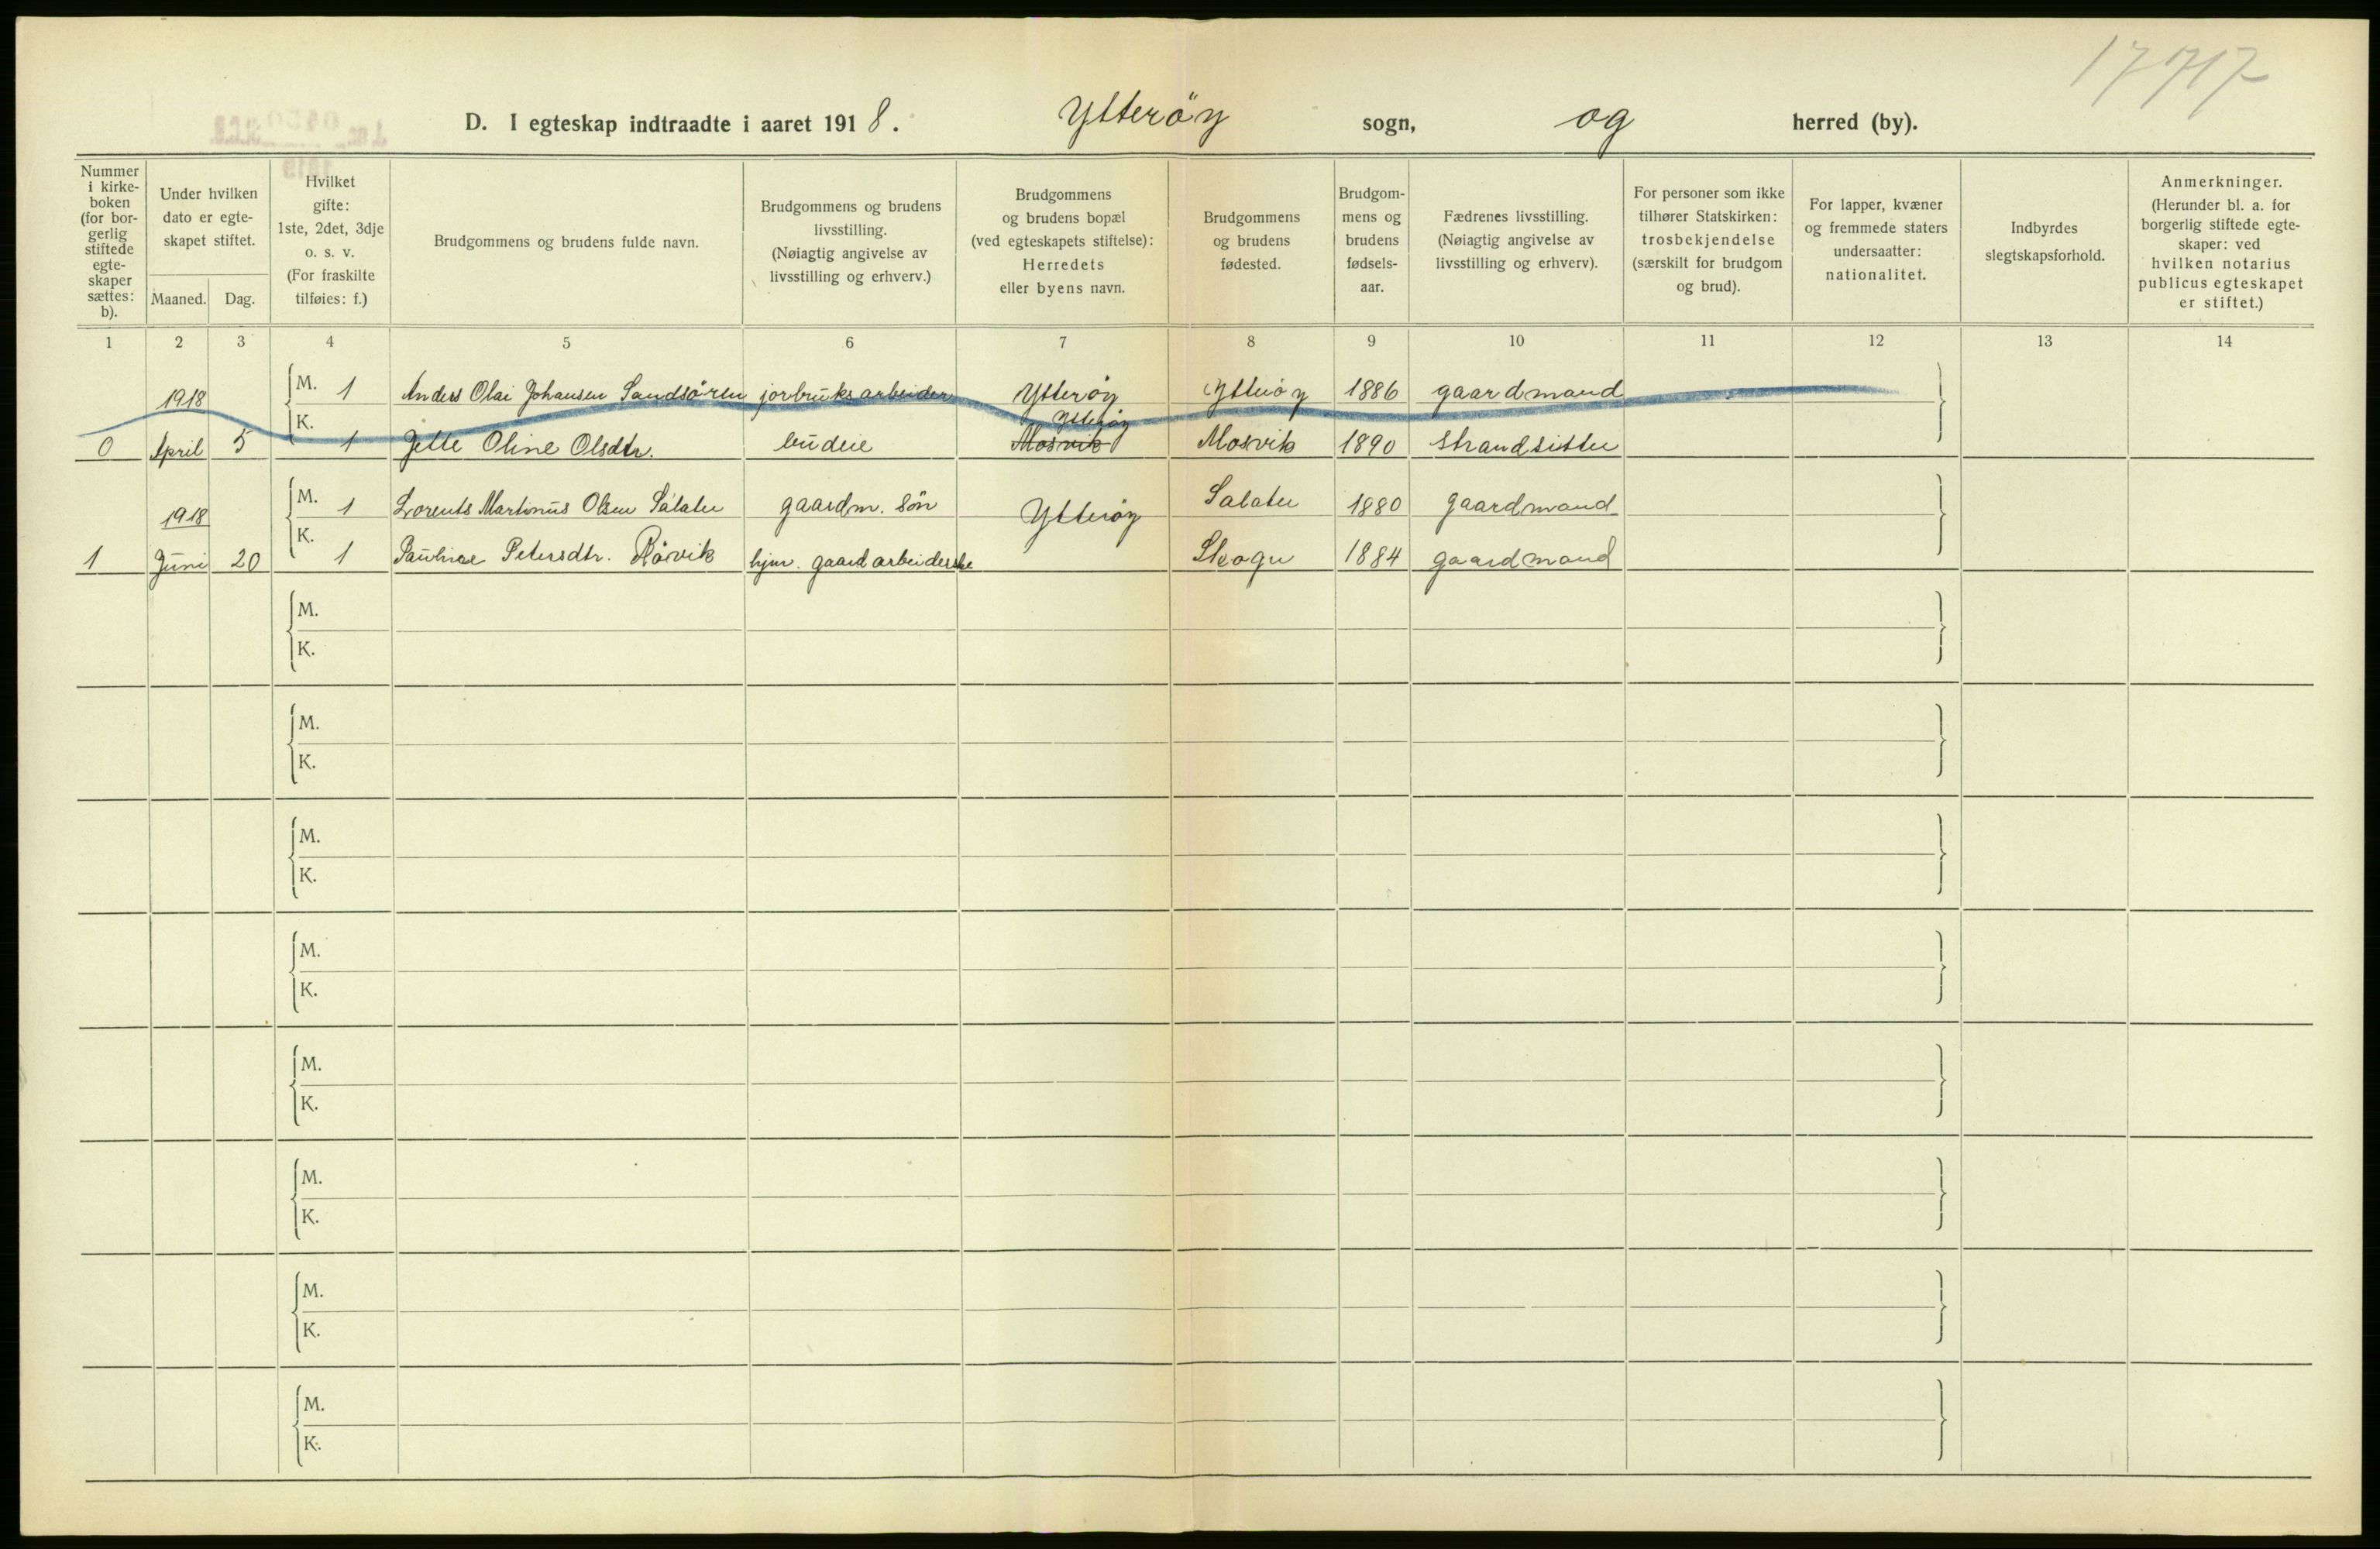 17717
D. I egteskap indtraadte i aaret 1918. Ytteröy sogn, og herred (by).
Nummer i kirke-boken (for bor-gerlig stiftede egte-skaper sættes: b).
Under hvilken dato er egte-skapet stiftet.
Maaned. Dag.
Hvilket gifte: 1ste, 2det, 3dje o. s. v. (For fraskilte tilføies: f.)
Brudgommens og brudens fulde navn.
Brudgommens og brudens livsstilling. (Nøiagtig angivelse av livsstilling og erhverv.)
Brudgommens og brudens bopæl (ved egteskapets stiftelse): Herredets eller byens navn.
Brudgommens og brudens fødested.
Brudgom-mens og brudens fødsels-aar.
Fædrenes livsstilling. (Nøiagtig angivelse av livsstilling og erhverv).
For personer som ikke tilhører Statskirken: trosbekjendelse (særskilt for brudgom og brud).
For lapper, kvæner og fremmede staters undersaatter: nationalitet.
Indbyrdes slegtskapsforhold.
Anmerkninger. (Herunder bl. a. for borgerlig stiftede egte-skaper: ved hvilken notarius publicus egteskapet er stiftet.)
1 2 3 4 5 6 7 8 9 10 11 12 13 14
1918 M. 1 Anders Olai Johansen Sandsören jorbruksarbeider Ytteröy Ytteröy 1886 gaardmand
Ytteröy
0 April 5 K. 1 Jette Oline Olsdtr. budeie Mosvik Mosvik 1890 strandsitter
1918 M. 1 Lorents Martinus Olsen Salater gaardm. sön Ytteröy Salater 1880 gaardmand
1 Juni 20 K. 1 Pauline Petersdtr. Råvik hjm. gaardarbeiderske Skogn 1884 gaardmand
M.
K.
M.
K.
M.
K.
M.
K.
M.
K.
M.
K.
M.
K.
M.
K.